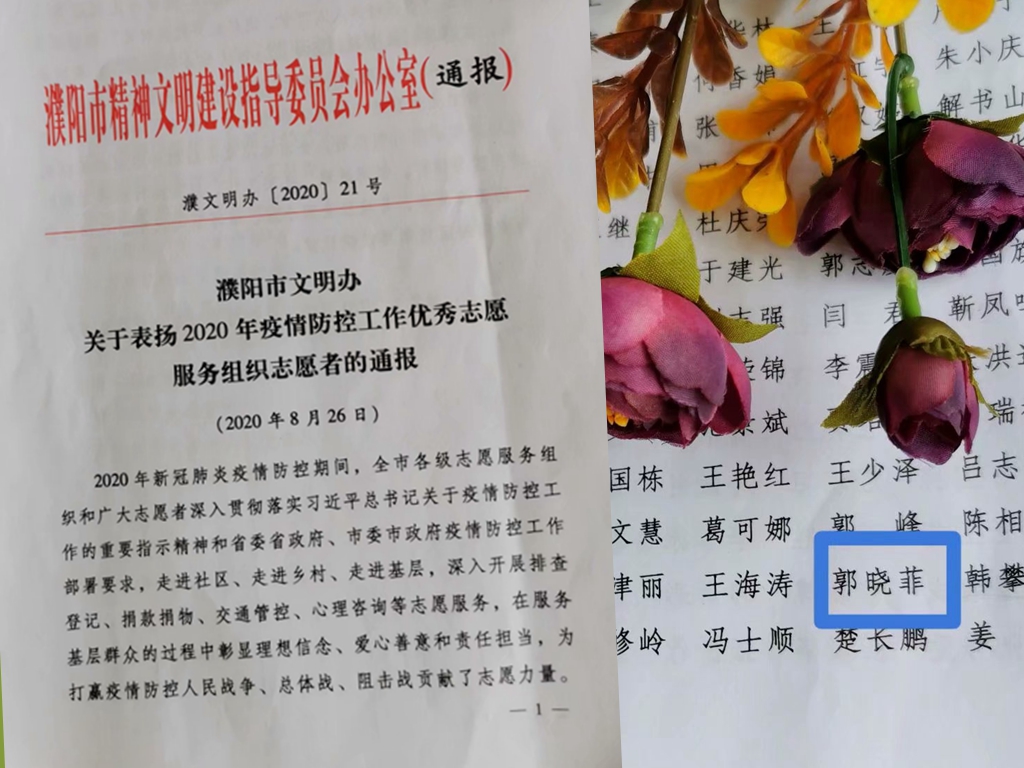 濮阳市精神文明建设指导委员会办公室(通报)
濮文明办〔2020〕21号
濮阳市文明办
关于表扬2020年疫情防控工作优秀志愿
服务组织志愿者的通报
(2020年8月26日)
2020年新冠肺炎疫情防控期间，全市各级志愿服务组
织和广大志愿者深入贯彻落实习近平总书记关于疫情防控工
作的重要指示精神和省委省政府、市委市政府疫情防控工作
部署要求，走进社区、走进乡村、走进基层，深入开展排查
登记、捐款捐物、交通管控、心理咨询等志愿服务，在服务
基层群众的过程中彰显理想信念、爱心善意和责任担当，为
打赢疫情防控人民战争、总体战、阻击战贡献了志愿力量。
— 1 —
朱小庆
何香娟
张 解书山
继 杜庆
于建光 郭志 国
志强 闫君 靳凤
锦 李震 洪
斌 瑞
国栋 王艳红 王少泽 吕志
文慧 葛可娜 郭峰 陈相
津丽 王海涛 郭晓菲 韩攀
修岭 冯士顺 楚长鹏 姜